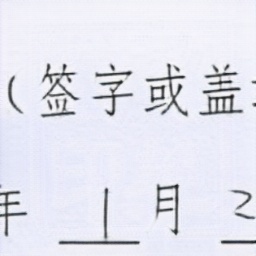 （签字或盖
年 1 月 2